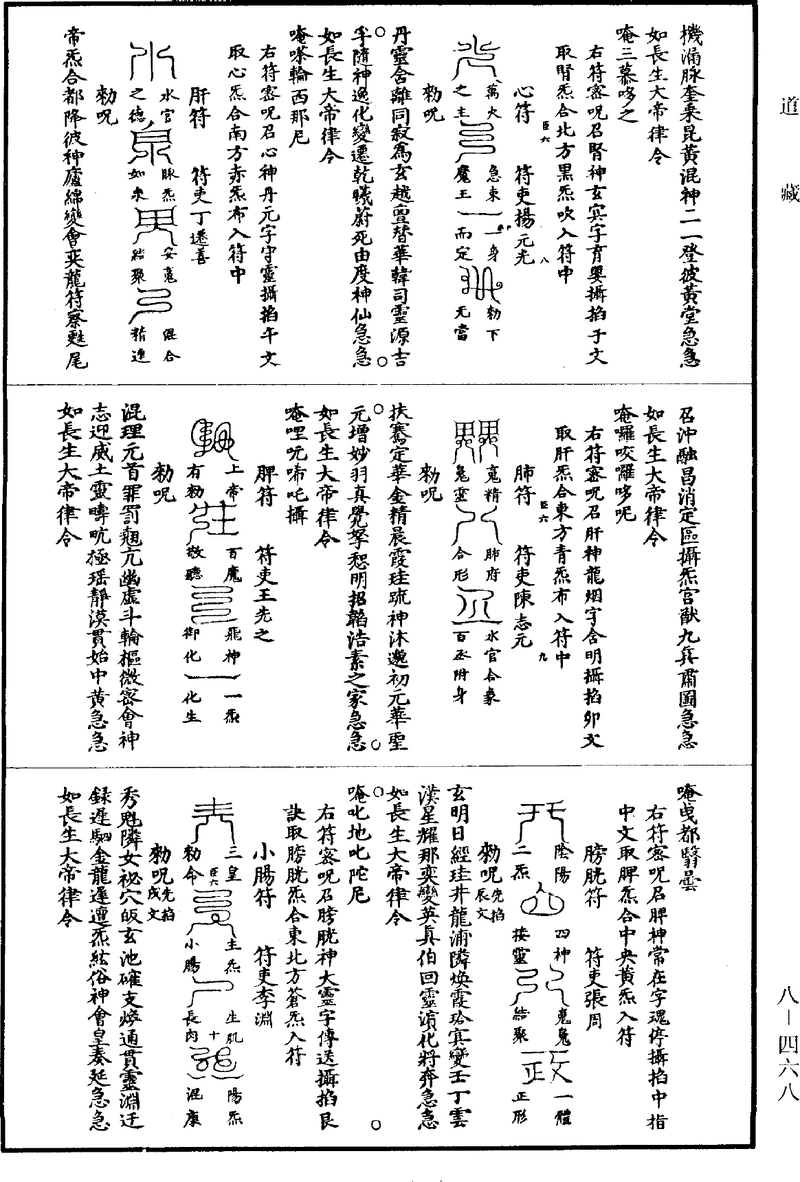 道藏
八－四六八
機涌脉奎乘昆黃混神二一登彼黃堂急急
如長生大帝律令
唵三慕哆之
右符密呪召腎神玄冥字育嬰攝掐子文
取腎炁合北方黑炁吹入符中
心符　符吏楊元光
萬火之主
急束魔王
一身而定
勑下无當
勑呪
丹靈含離同寂為玄越亶替華韓司靈源吉
孚隨神逸化變遷乾曦蔚死由度神仙急急
如長生大帝律令
唵嗏輪西那尼
右符密呪召心神丹元字守靈攝掐午文
取心炁合南方赤炁布入符中
肝符　符吏丁送善
水官之德
脉炁如泉
安魂結聚
混合精進
勑呪
帝炁合都降彼神廬綿變會奕龍符察甦尾
召沖融昌消定區攝炁宫猷九真肅圖急急
如長生大帝律令
唵囉咬囉哆呢
右符密呪召肝神龍烟字含明攝掐卯文
取肝炁合東方青炁布入符中
肺符　符吏陳志元
魂精魄靈
肺府合形
水官合象
百丞附身
勑呪
扶騫定華金精晨霞珪䟽神沐邀初元華聖
元增妙羽真覺拏恕明招韜浩素之家急急
如長生大帝律令
唵哩吭啼吒攝
脾符　符吏王先之
上帝有勑
百魔敬聽
飛神御化
一炁化生
勑呪
混理元首罪罰𩳐亢幽虛斗輪樞微密會神
志迎威土靈疇吭極瑶靜漠貫始中黃急急
如長生大帝律令
唵曳都翳曇
右符密呪召脾神常在字魂停攝掐中指
中文取脾炁合中央黃炁入符
膀胱符　符吏張周
陰陽二炁
四神接靈
魂魄結聚
一體正形
勑呪先掐辰文
玄明日經珪井龍浦隣煥霞玱冥變壬丁雲
漢星耀那奕變英真伯回靈濱化將奔急急
如長生大帝律令
唵叱地叱陀尼
右符密呪召膀胱神大靈字傳送攝掐艮
訣取膀胱炁合東北方蒼炁入符
小腸符　符吏李淵
三皇勑命
主炁小腸
生肌長肉
陽炁混康
勑呪先掐戌文
秀魁隣女祕穴皈玄池確支焕通貫靈淵迁
録遲駟金龍遲邅炁絃俗神會皇奏延急急
如長生大帝律令